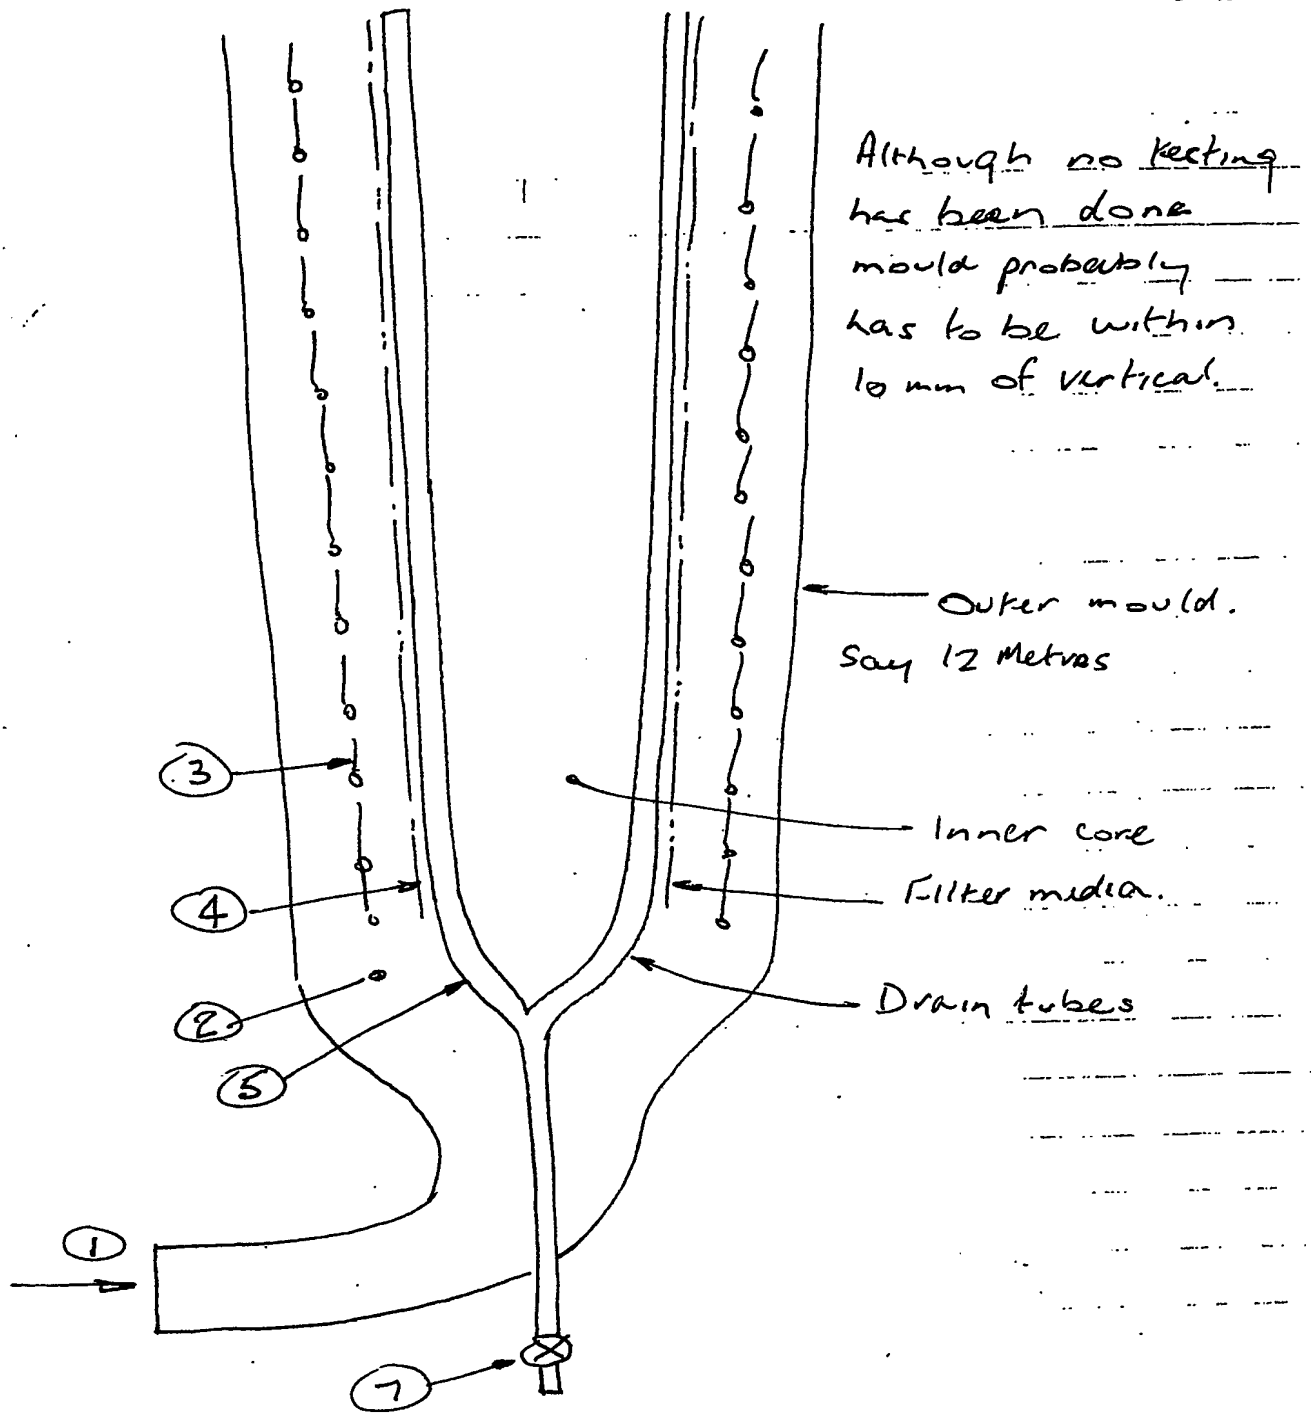 Although no testing
has been done
mould probably
has to be within
10 mm of vertical.
Outer mould.
Say 12 Metres
3
Inner core
4
Filter media.
2
Drain tubes
5
1
7